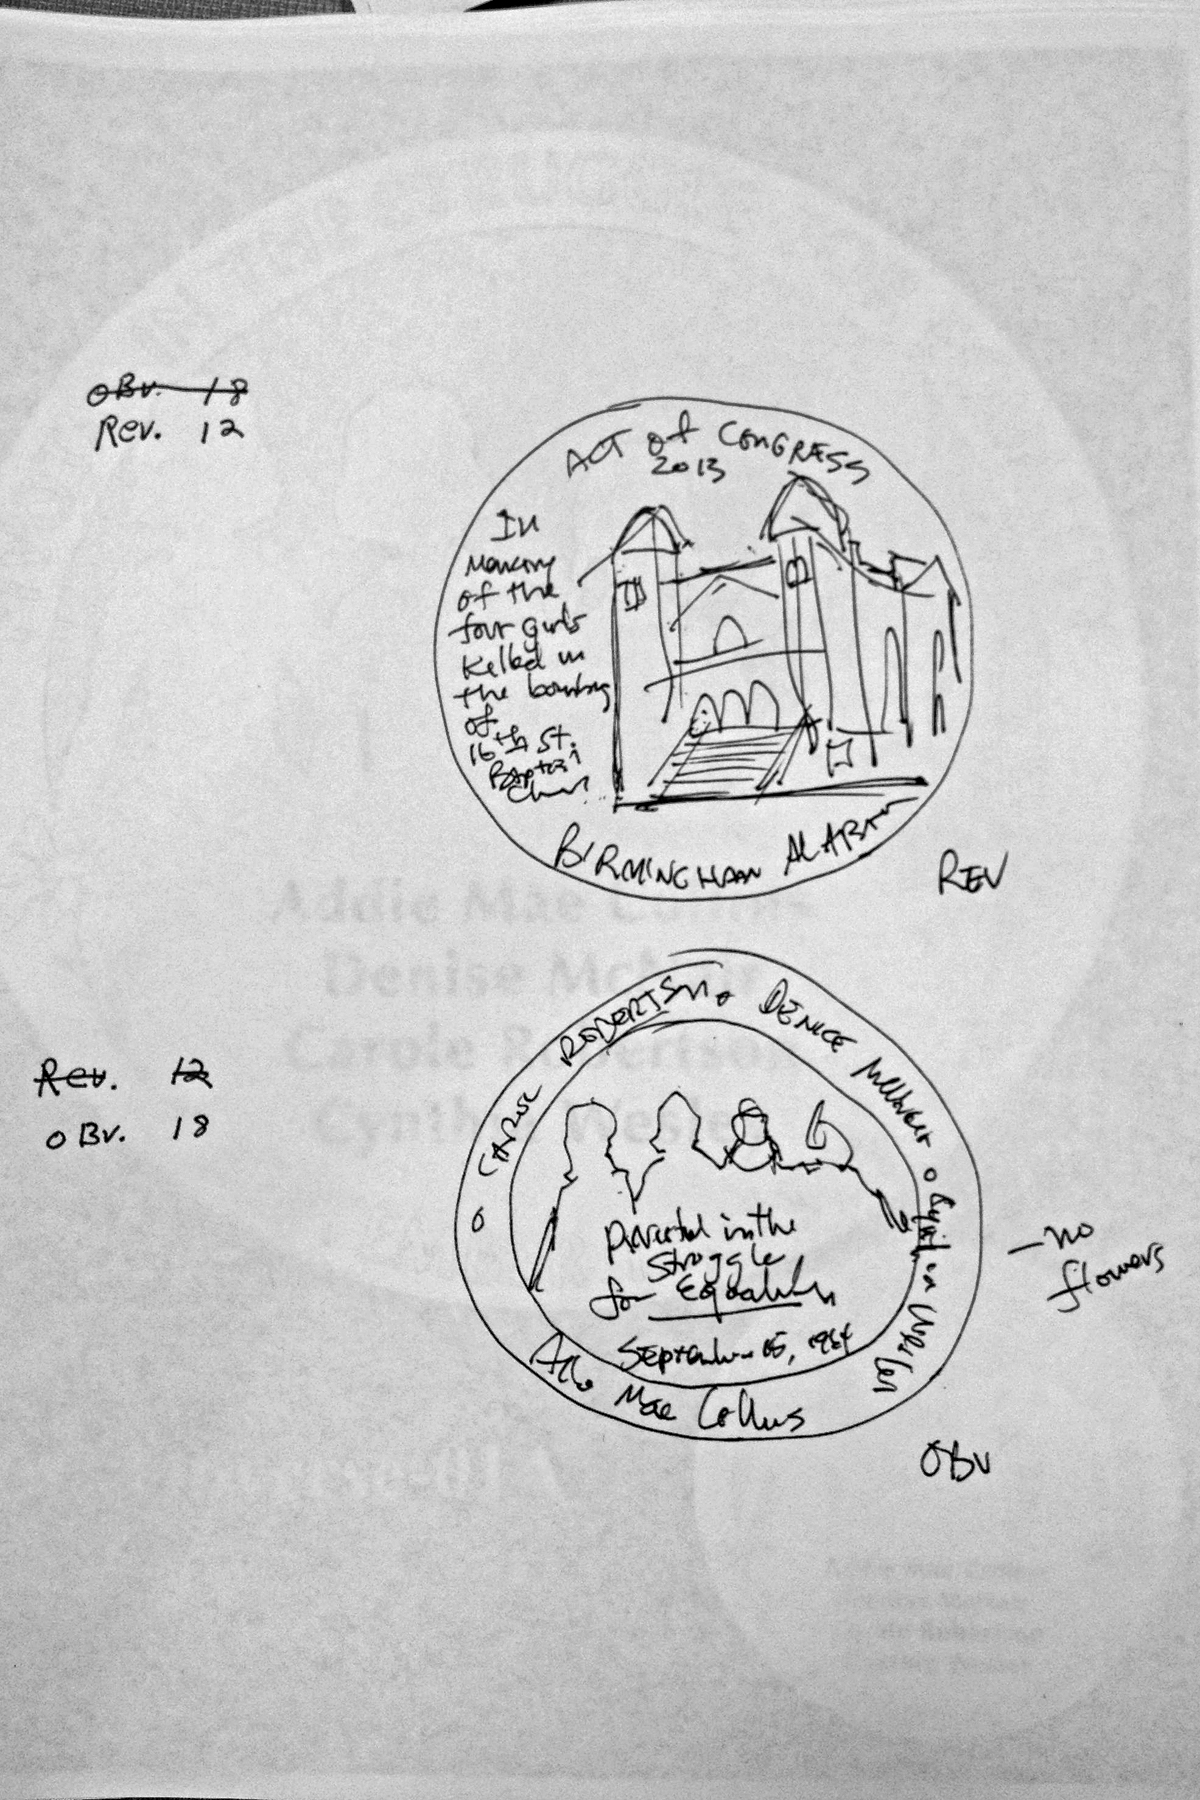 oBv. 18
Rev. 12
ACT of CONGRESS
2013
In
Memory
of the
four girls
Killed in
the bombing
of
16th St.
Baptist
Church
BIRMINGHAM ALABAMA
REV
Addie Mae Collins
Denise McNair
Carole Robertson
Cynthia Wesley
Rev. 12
oBv. 18
CAROLE ROBERTSON o DENICE McNair o Cynthia Wesley
Addie Mae Collins
in the
Struggle
for Equality
September 15, 1964
– no
flowers
OBV